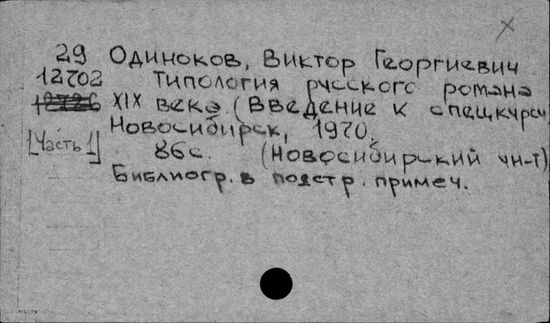 29 Одиноков, Виктор Георгиевич
12702 Типология русского романа
XIX века (Введение к спецкурсу)
Новосибирск, 1970.
[Часть 1] 86с. (Новосибирский ун-т)
Библиогр. в подстр. примеч.